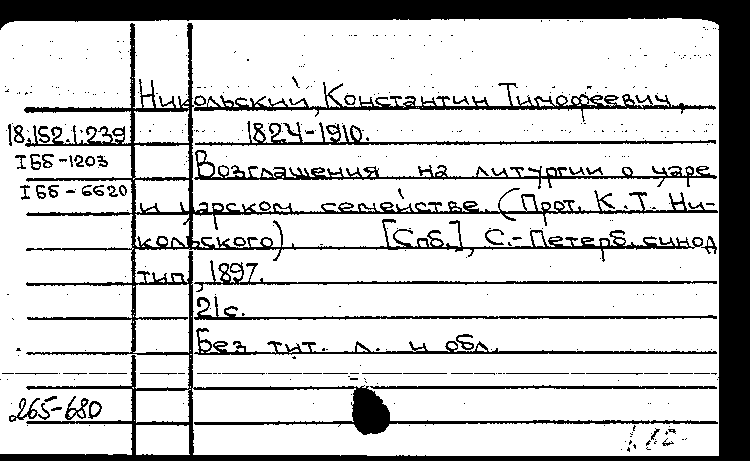 Никольский, Константин Тимофеевич,
18.152.1.239 1824-1910.
I ББ-1203 Возглашения на литургии о царе
I ББ-6620 и царском семействе. (Прот. К.Т. Ни-
кольского). [Спб.], С.-Петерб. синод
тип., 1897.
21с.
Без тит. л. и обл.
265-680